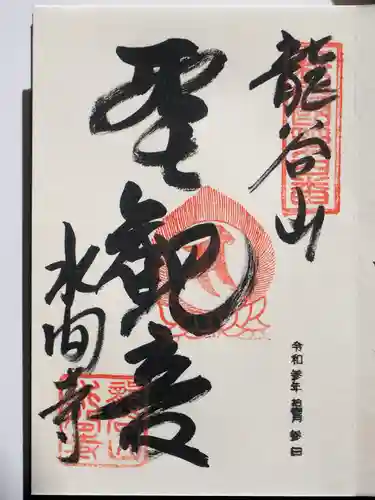 龍谷山
聖観音
水間寺
令和参年
参日